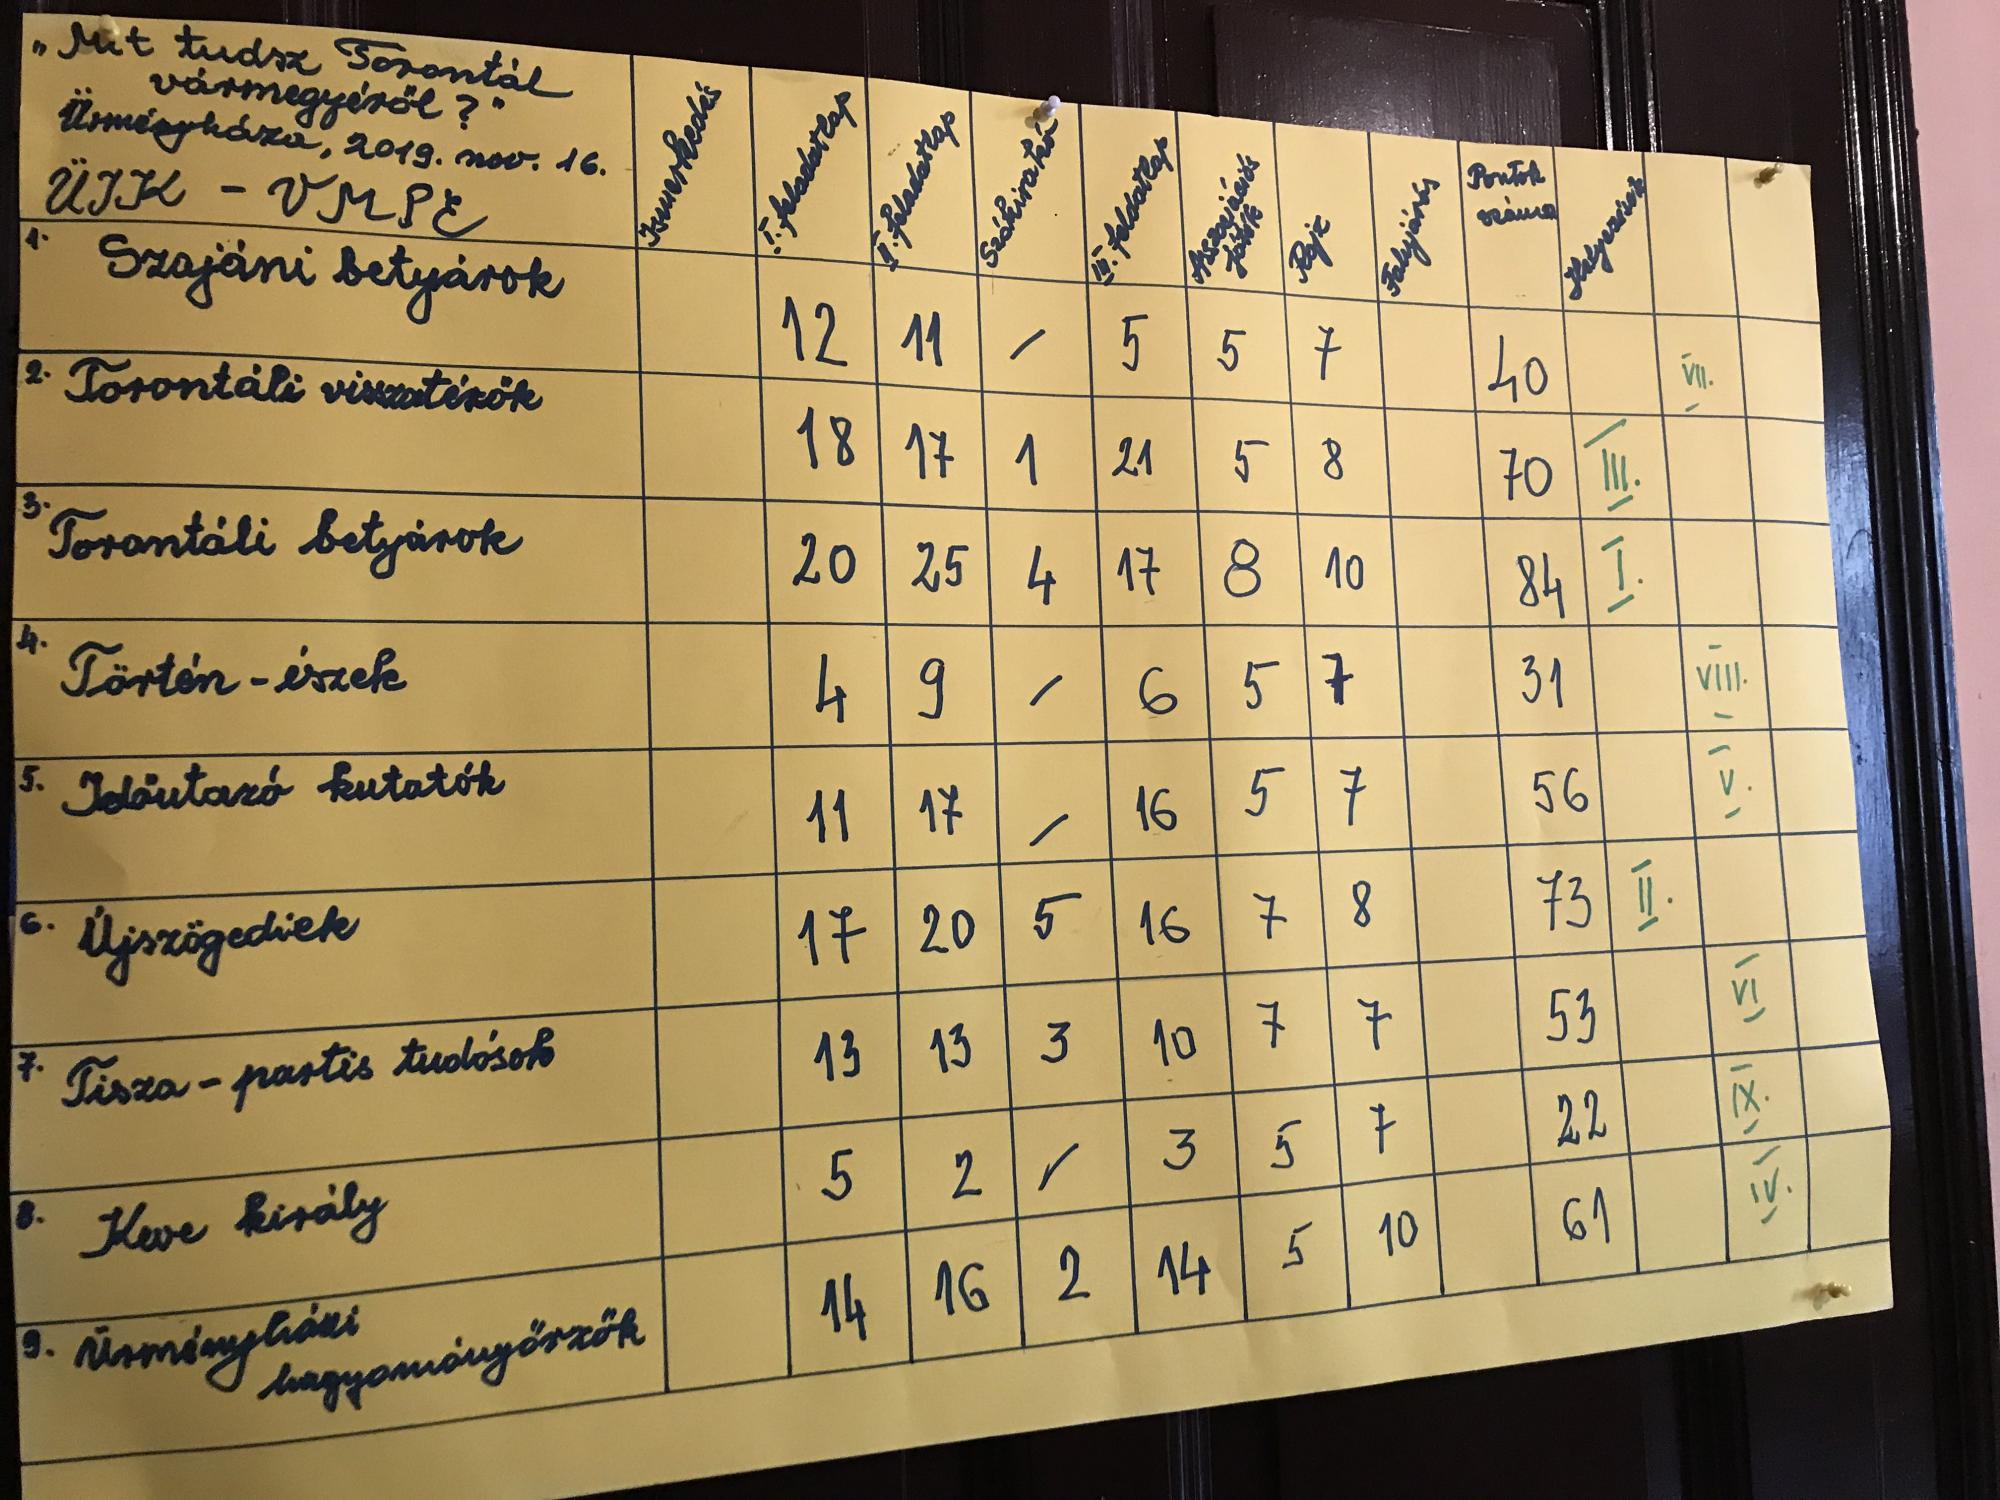 „Mit tudsz Torontál
vármegyéről?"
Ürményháza, 2019. nov. 16.
ÜIK - VMPE
Ismerkedés
I. feladatlap
II. feladatlap
Szókirakó
III. feladatlap
Asszociációs játék
Rajz
Falujárás
Pontok száma
Helyezések
1. Szajáni betyárok 12 11 / 5 5 7 40 VII.
2. Torontáli visszatérők 18 17 1 21 5 8 70 III.
3. Torontáli betyárok 20 25 4 17 8 10 84 I.
4. Történ-észek 4 9 / 6 5 7 31 VIII.
5. Időutazó kutatók 11 17 / 16 5 7 56 V.
6. Újszögediek 17 20 5 16 7 8 73 II.
7. Tisza-partis tudósok 13 13 3 10 7 7 53 VI
8. Keve király 5 2 / 3 5 7 22 IX.
9. Ürményházi
hagyományőrzők 14 16 2 14 5 10 61 IV.